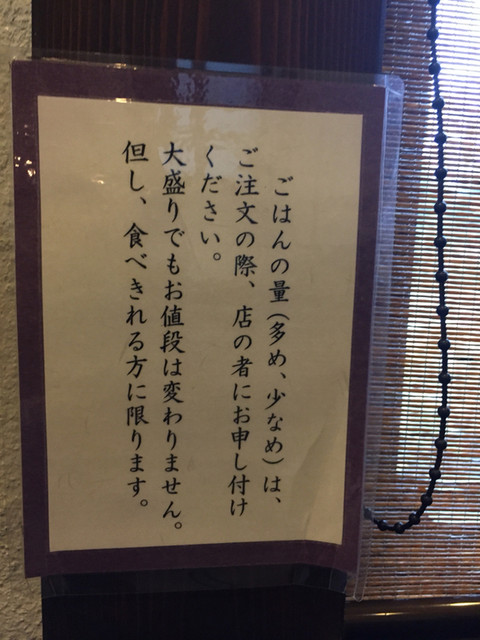 ごはんの量(多め、少なめ)は、
ご注文の際、店の者にお申し付け
ください。
大盛りでもお値段は変わりません。
但し、食べきれる方に限ります。